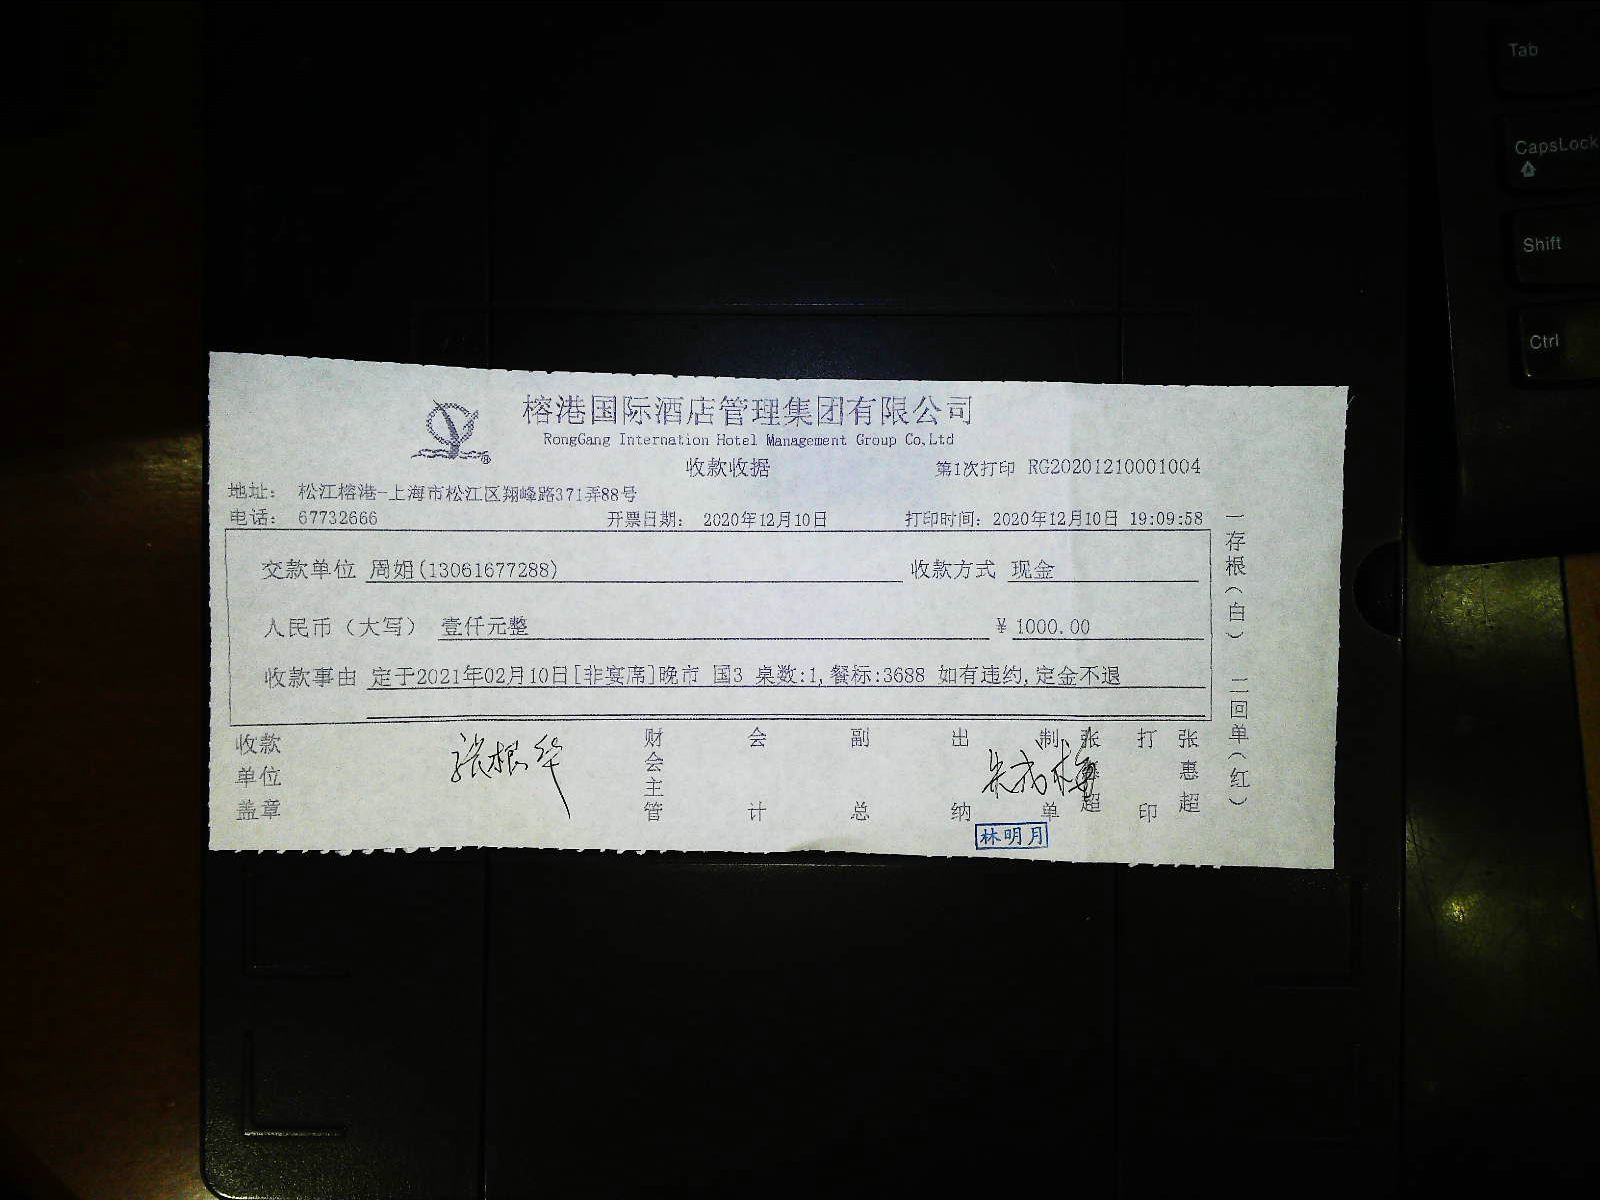 Tab
CapsLock
Shift
Ctrl
榕港国际酒店管理集团有限公司
RongGang Internation Hotel Management Group Co,Ltd
收款收据 第1次打印 RG20201210001004
地址： 松江榕港-上海市松江区翔峰路371弄88号
电话： 67732666 开票日期： 2020年12月10日 打印时间：2020年12月10日 19:09:58
交款单位 周娟(13061677288) 收款方式 现金
人民币（大写） 壹仟元整 ￥ 1000.00
收款事由 定于2021年02月10日[非宴席]晚市 国3 桌数:1,餐标:3688 如有违约,定金不退
收款单位盖章 张根华 财会主管 会计 副总 出纳 制单 张惠超 打印 张惠超
林明月
一存根（白） 二回单（红）